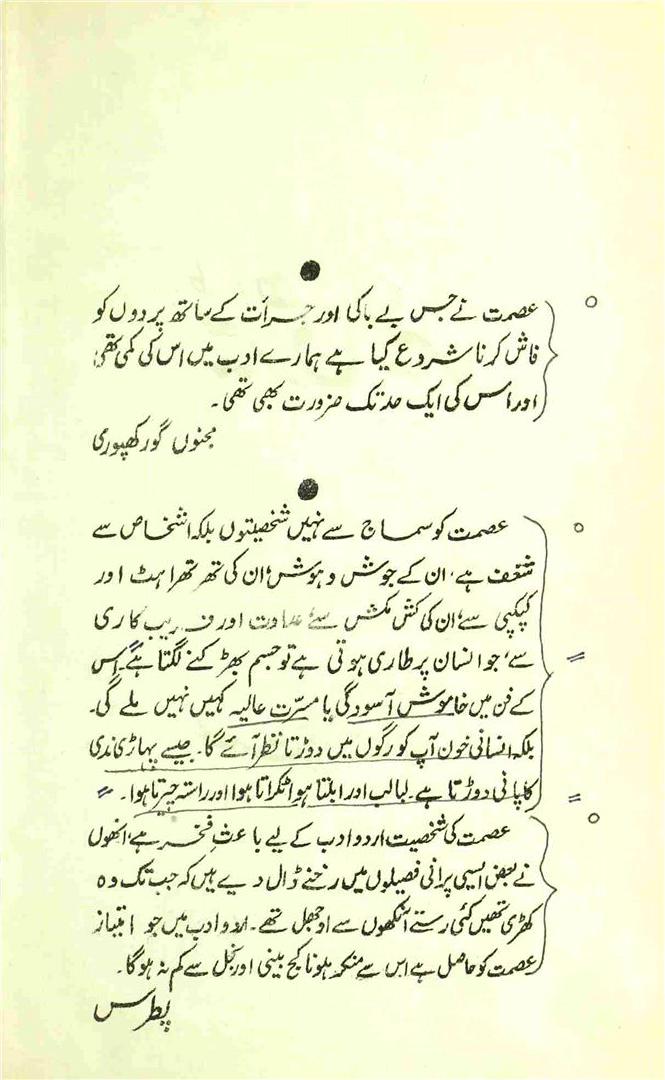 عصمت نے جس بے باکی اور جرأت کے ساتھ پردوں کو
فاش کرنا شروع کیا ہے ہمارے ادب میں اس کی کمی تھی
اور اس کی ایک حد تک ضرورت بھی تھی۔
مجنوں گورکھپوری
عصمت کو سماج سے نہیں شخصیتوں بلکہ اشخاص سے
شغف ہے، ان کے جوش و ہوش، ان کی تھرتھراہٹ اور
کپکپی سے، ان کی کش مکش سے، عداوت اور فریب کاری
سے، جو انسان پر طاری ہوتی ہے تو جسم بھڑکنے لگتا ہے۔ اس
کے فن میں خاموش آسودگی یا مسرّت عالیہ کہیں نہیں ملے گی۔
بلکہ انسانی خون آپ کو رگوں میں دوڑتا نظر آئے گا۔ جیسے پہاڑی ندی
کا پانی دوڑتا ہے۔ لبالب اور ابلتا ہوا ٹکراتا ہوا اور راستہ چیرتا ہوا۔
عصمت کی شخصیت اردو ادب کے لیے باعثِ فخر ہے، انھوں
نے بعض ایسی پرانی فصیلوں میں رخنے ڈال دیے ہیں کہ جب تک وہ
کھڑی تھیں کئی رستے آنکھوں سے اوجھل تھے۔ اردو ادب میں جو امتیاز
عصمت کو حاصل ہے اس سے منکر ہونا کج بینی اور بخل سے کم نہ ہوگا۔
پطرس